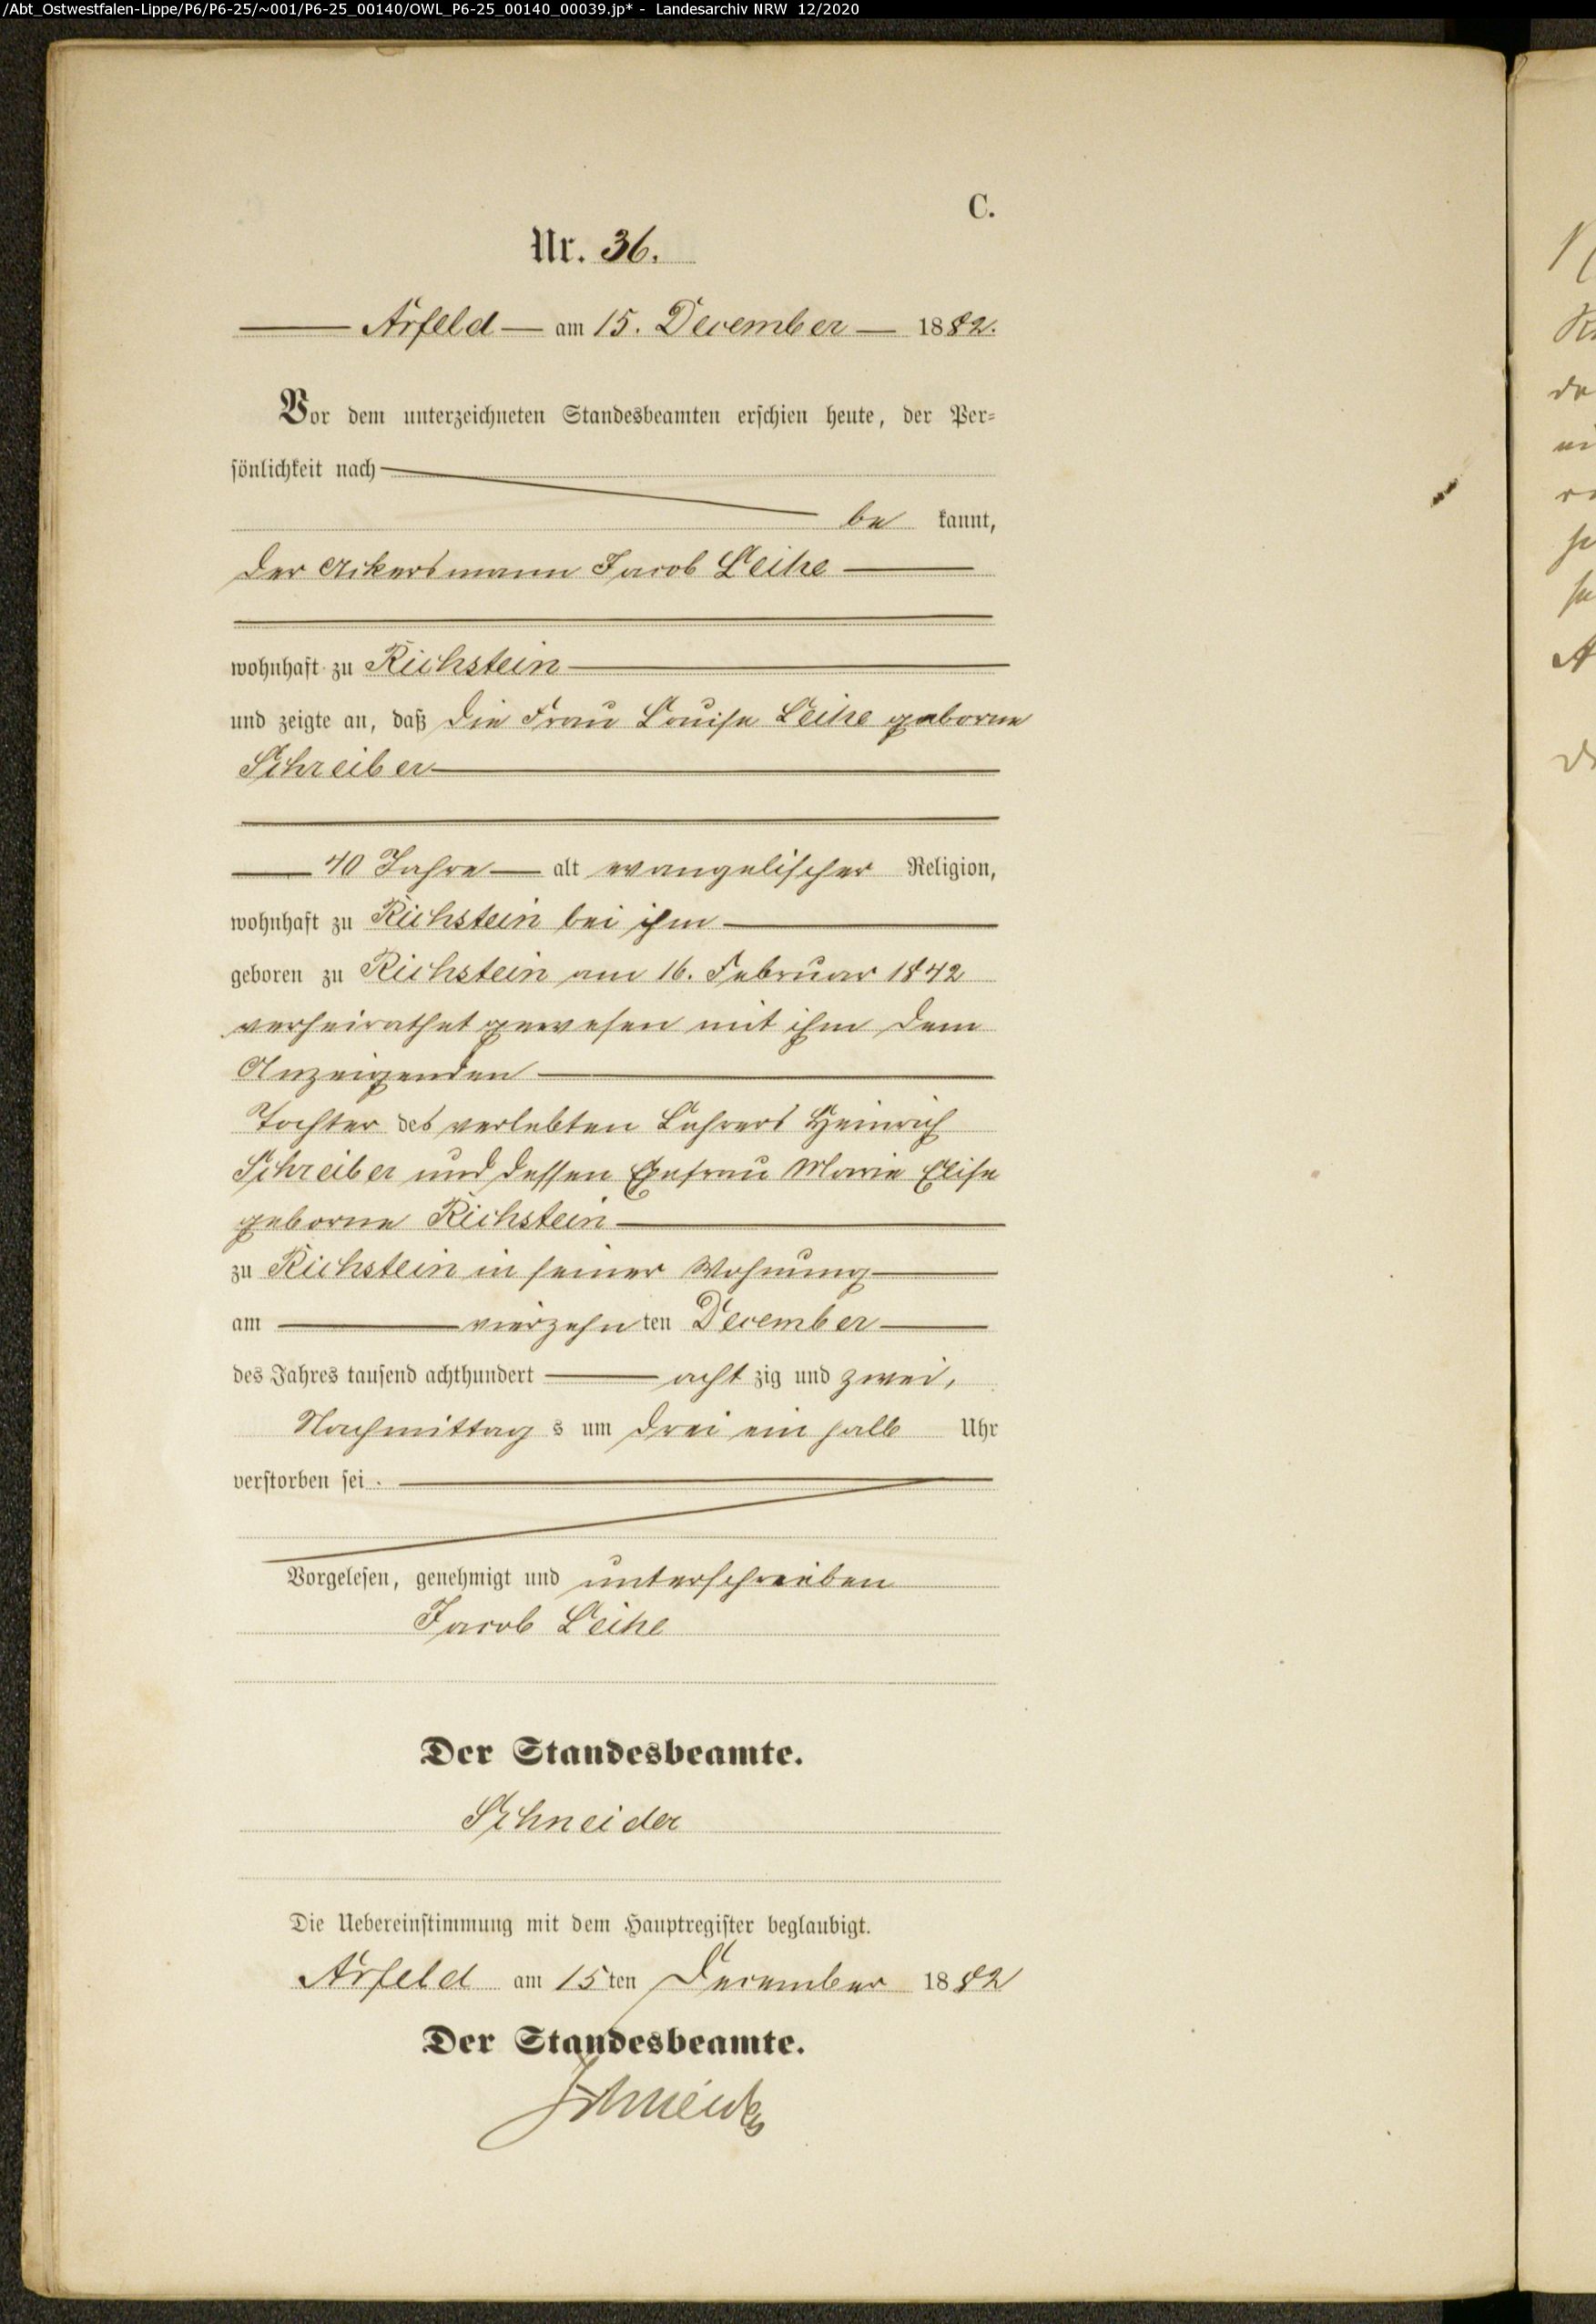 /Abt_Ostwestfalen-Lippe/P6/P6-25/~001/P6-25_00140/OWL_P6-25_00140_00039.jp* - Landesarchiv NRW 12/2020
C.
Nr. 36.
Arfeld am 15. December 1882.
Vor dem unterzeichneten Standesbeamten erschien heute, der Per-
sönlichkeit nach
be kannt,
der Ackersmann Jacob Leihe
wohnhaft zu Richstein
und zeigte an, daß die Frau Louise Leihe geborne
Schreiber
40 Jahre alt evangelischer Religion,
wohnhaft zu Richstein bei ihm
geboren zu Richstein am 16. Februar 1842
verheirathet gewesen mit ihm dem
Anzeigenden
Tochter des verlebten Lehrers Heinrich
Schreiber und dessen Ehefrau Marie Elise
geborne Richstein
zu Richstein in seiner Wohnung
am vierzehn ten December
des Jahres tausend achthundert acht zig und zwei,
Nachmittag s um drei ein halb Uhr
verstorben sei.
Vorgelesen, genehmigt und unterschrieben
Jacob Leihe
Der Standesbeamte.
Schneider
Die Uebereinstimmung mit dem Hauptregister beglaubigt.
Arfeld am 15 ten December 1882
Der Standesbeamte.
Schneider